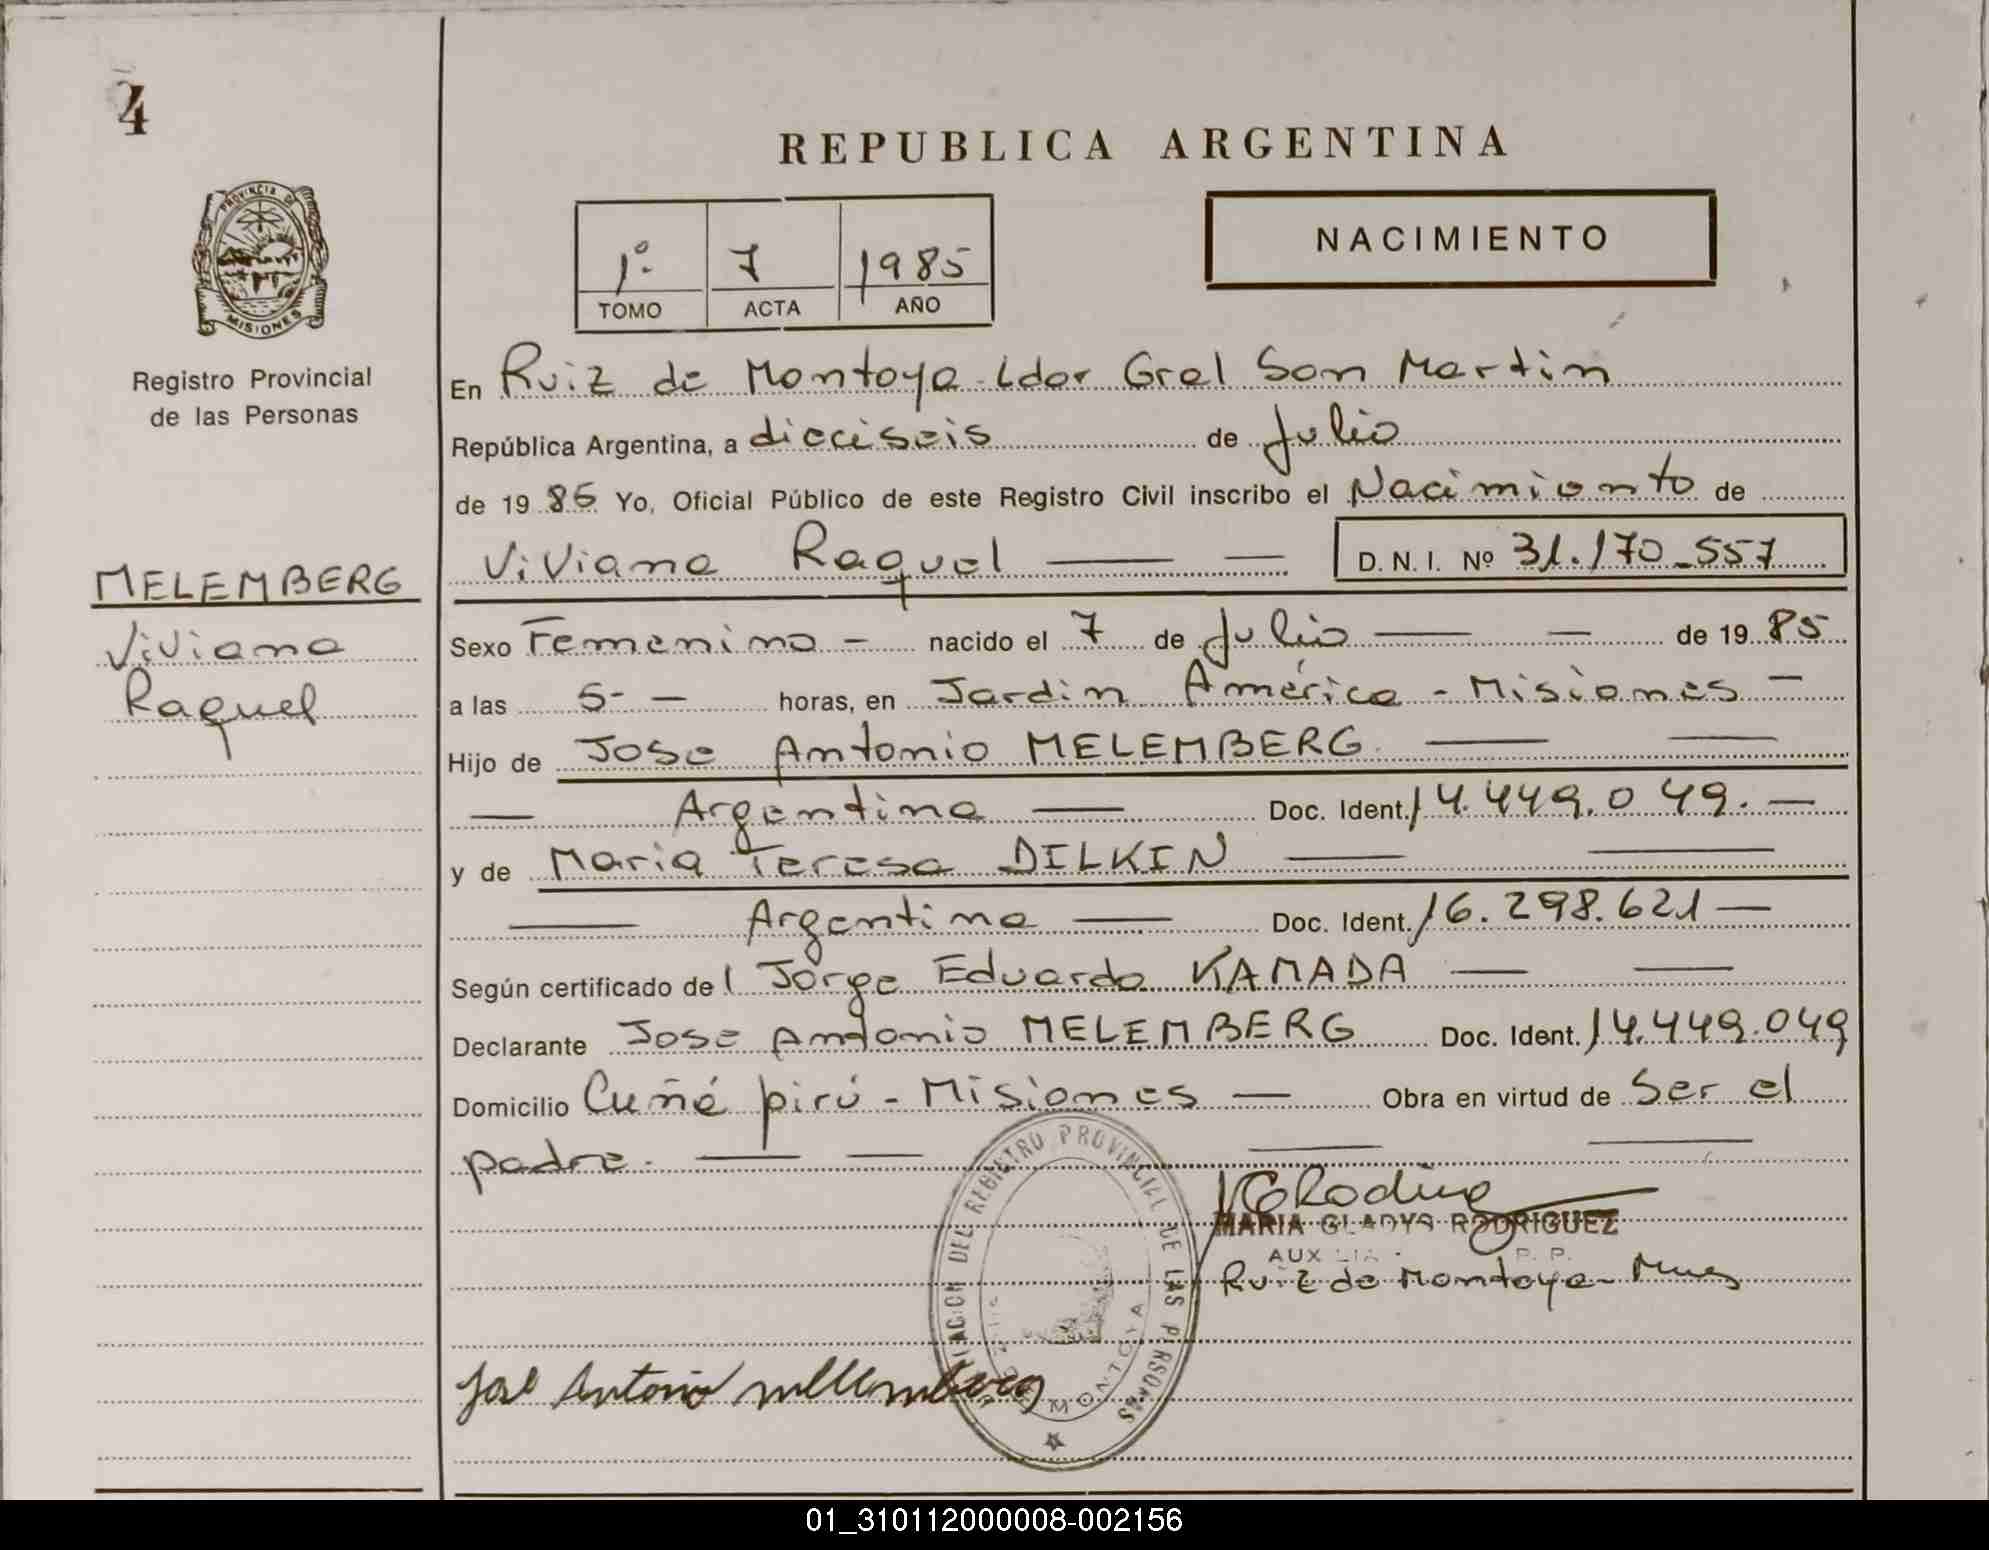 4
REPUBLICA ARGENTINA
1º. 7 1985
TOMO ACTA AÑO
NACIMIENTO
PROVINCIA DE
MISIONES
Registro Provincial
de las Personas
MELEMBERG
Viviana
Raquel
En Ruiz de Montoya Ldor Gral San Martin
República Argentina, a dieciseis de Julio
de 1985 Yo, Oficial Público de este Registro Civil inscribo el Nacimiento de
Viviana Raquel D. N. I. Nº 31.170.557
Sexo Femenino - nacido el 7 de Julio de 1985
a las 5- - horas, en Jardin América - Misiones -
Hijo de Jose Antonio MELEMBERG
Argentina Doc. Ident. 14.449.049. -
y de Maria Teresa DILKIN
Argentina Doc. Ident. 16.298.621 -
Según certificado del Jorge Eduardo KAMADA
Declarante Jose Antonio MELEMBERG Doc. Ident. 14.449.049
Domicilio Cuñá pirú - Misiones - Obra en virtud de Ser el
padre.
MARIA GLADYS RODRIGUEZ
Ruiz de Montoya - Mnes
DEL REGISTRO PROVINCIAL DE LAS PERSONAS
MONTOYA
José Antonio mellemberg
01_310112000008-002156